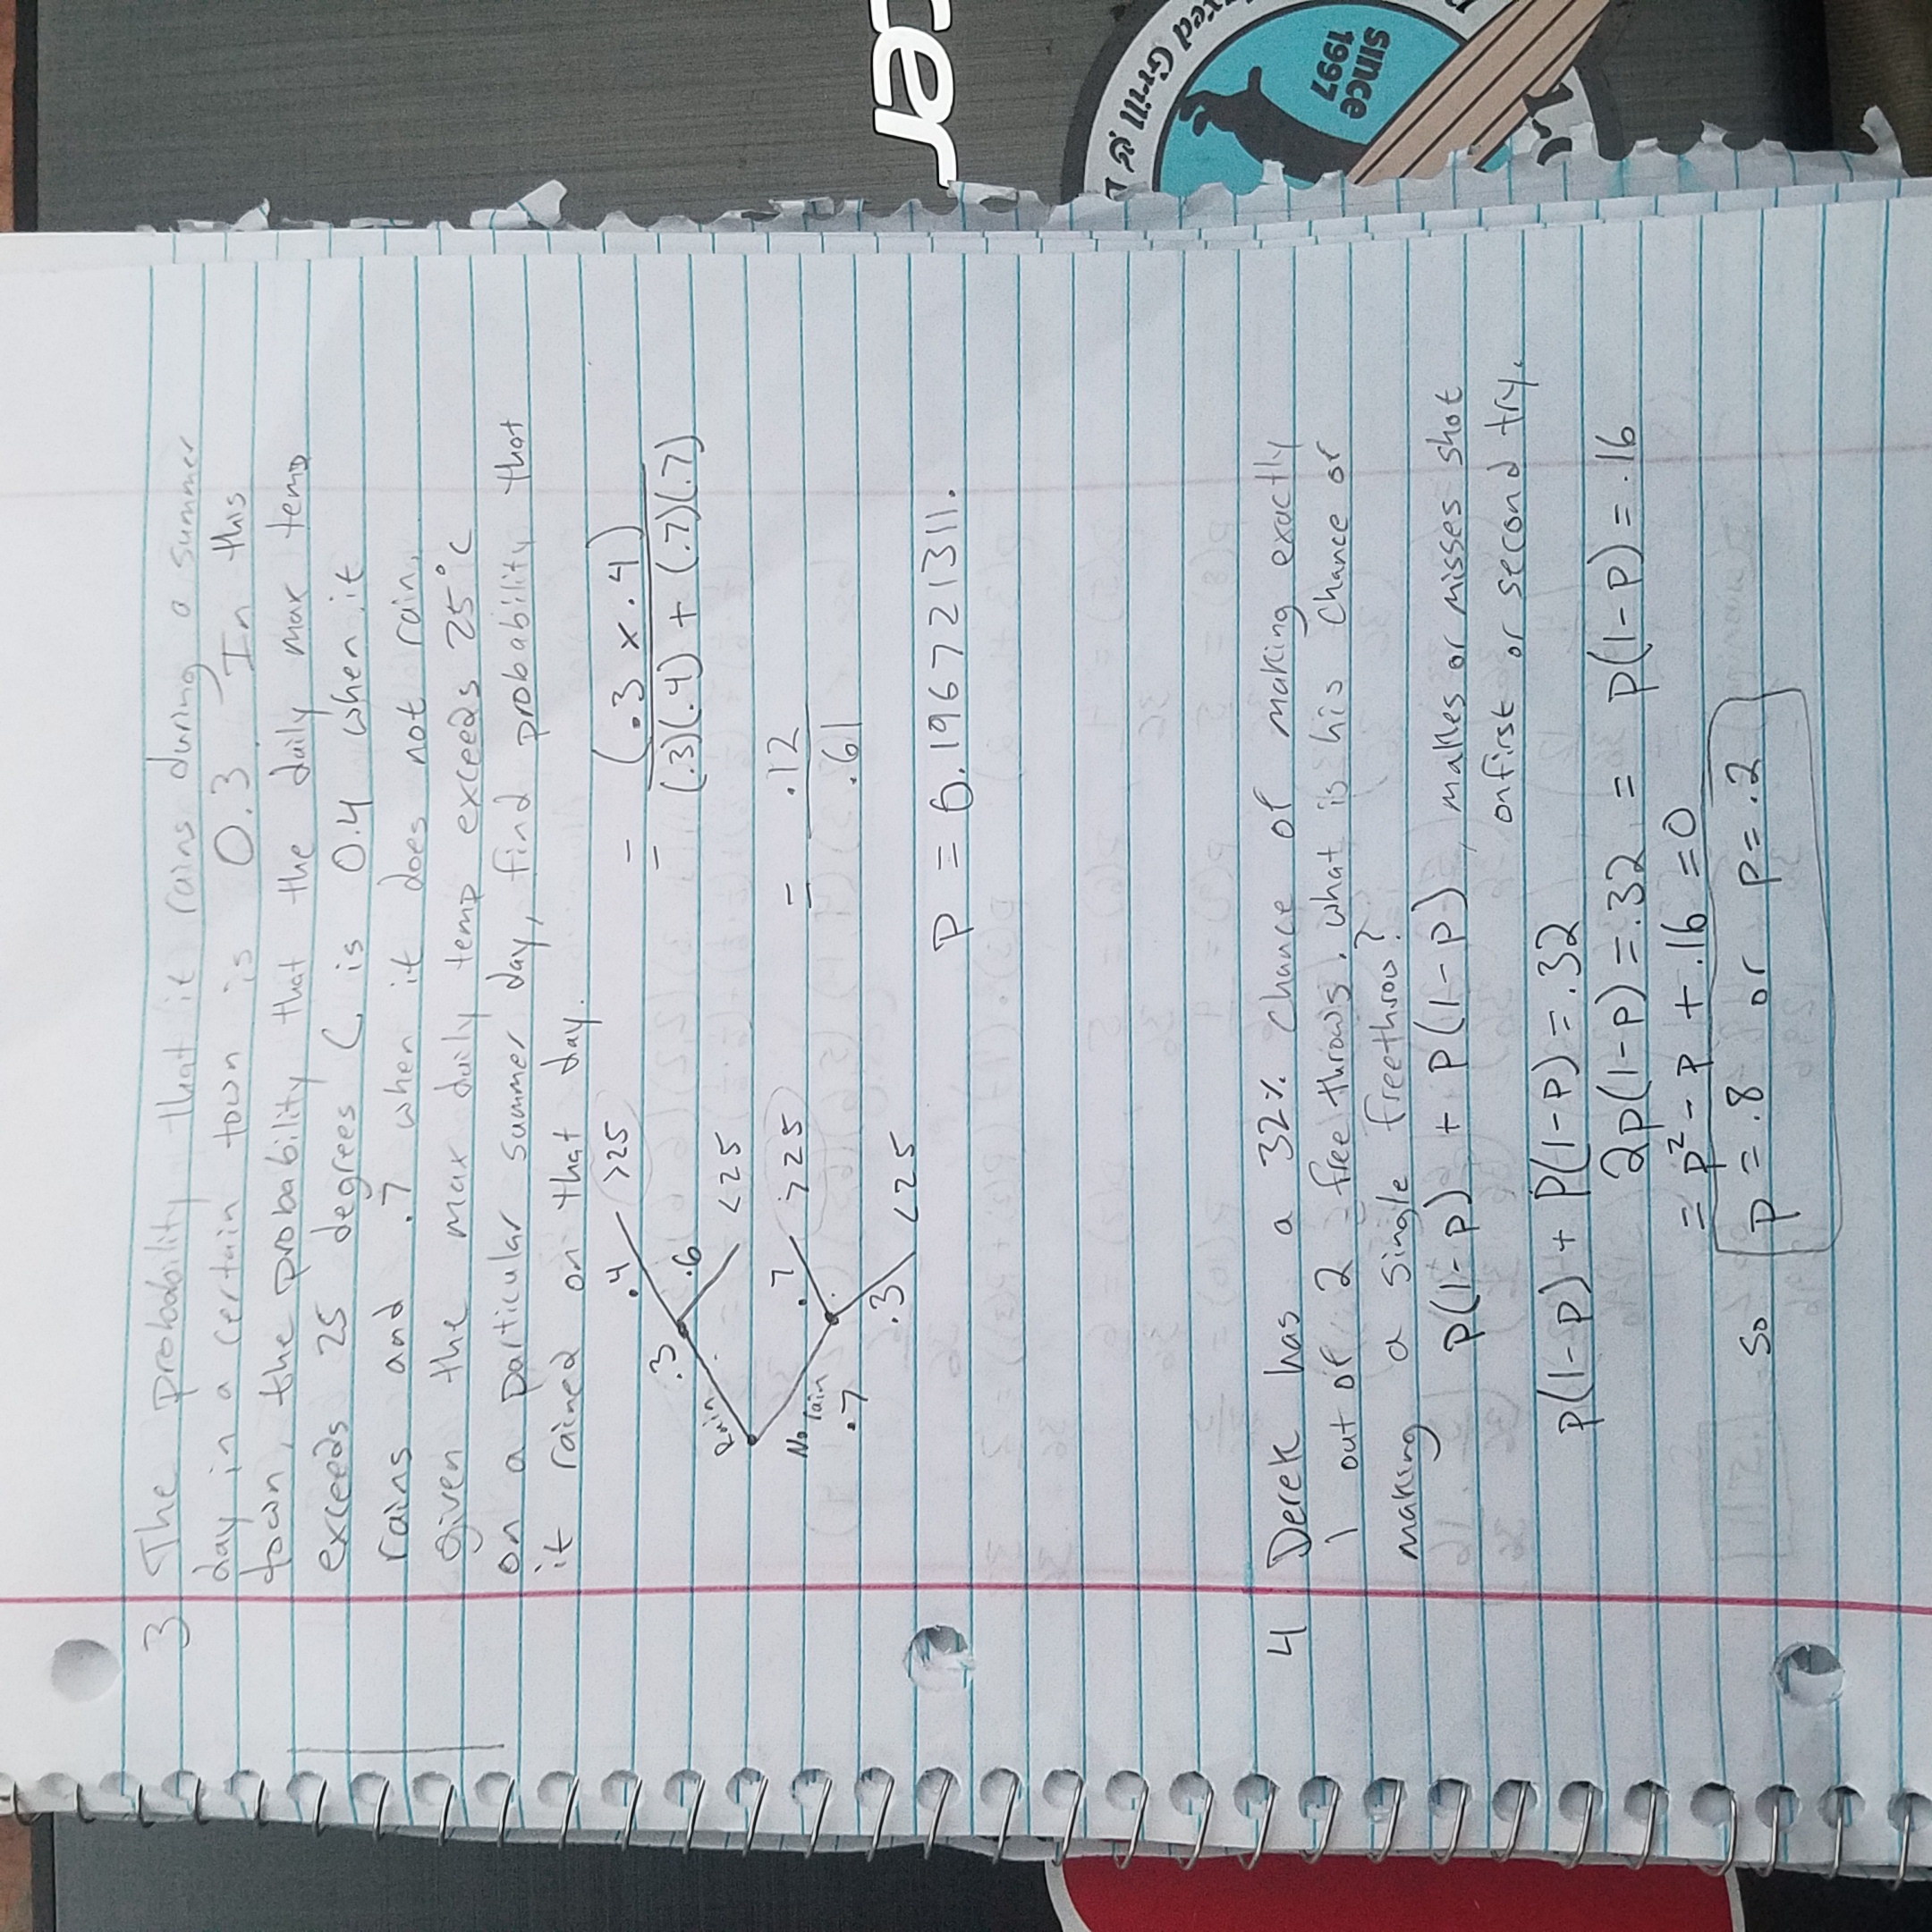 3 The probability that it rains during a summer
day in a certain town is 0.3. In this
town, the probability that the daily max temp
exceeds 25 degrees C is 0.4 when it
rains and .7 when it does not rain,
given the max daily temp exceeds 25°C
on a particular summer day, find probability that
it rained on that day.
.4 >25
.3
.6
Rain
<25
.7 >25
No rain
.7
.3 <25
= (.3 x .4)
(.3)(.4) + (.7)(.7)
= .12
.61
P = 0.196721311.
4 Derek has a 32% chance of making exactly
1 out of 2 free throws. what is his chance of
making a single freethrow?
p(1-p) + p(1-p), makes or misses shot
on first or second try.
p(1-p) + p(1-p) = .32
2p(1-p) = .32 = p(1-p) = .16
= p² - p + .16 = 0
so p = .8 or p = .2
cer
Grill &
since
1997